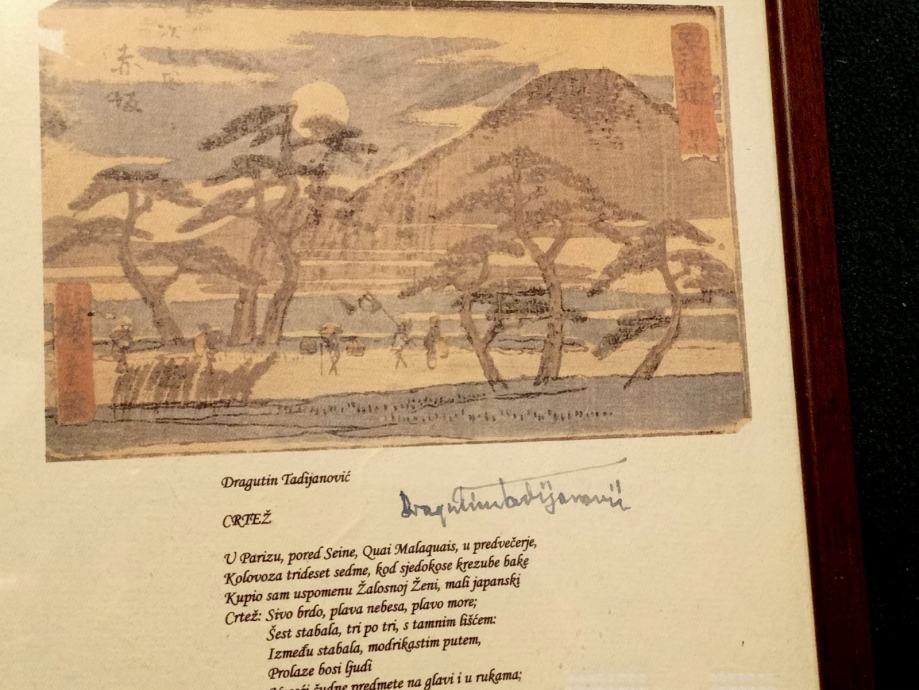 赤坂
Dragutin Tadijanović
Dragutin Tadijanović
CRTEŽ
U Parizu, pored Seine, Quai Malaquais, u predvečerje,
Kolovoza trideset sedme, kod sjedokose krezube bake
Kupio sam uspomenu Žalosnoj Ženi, mali japanski
Crtež: Sivo brdo, plava nebesa, plavo more;
Šest stabala, tri po tri, s tamnim lišćem:
Između stabala, modrikastim putem,
Prolaze bosi ljudi
čudne predmete na glavi i u rukama;